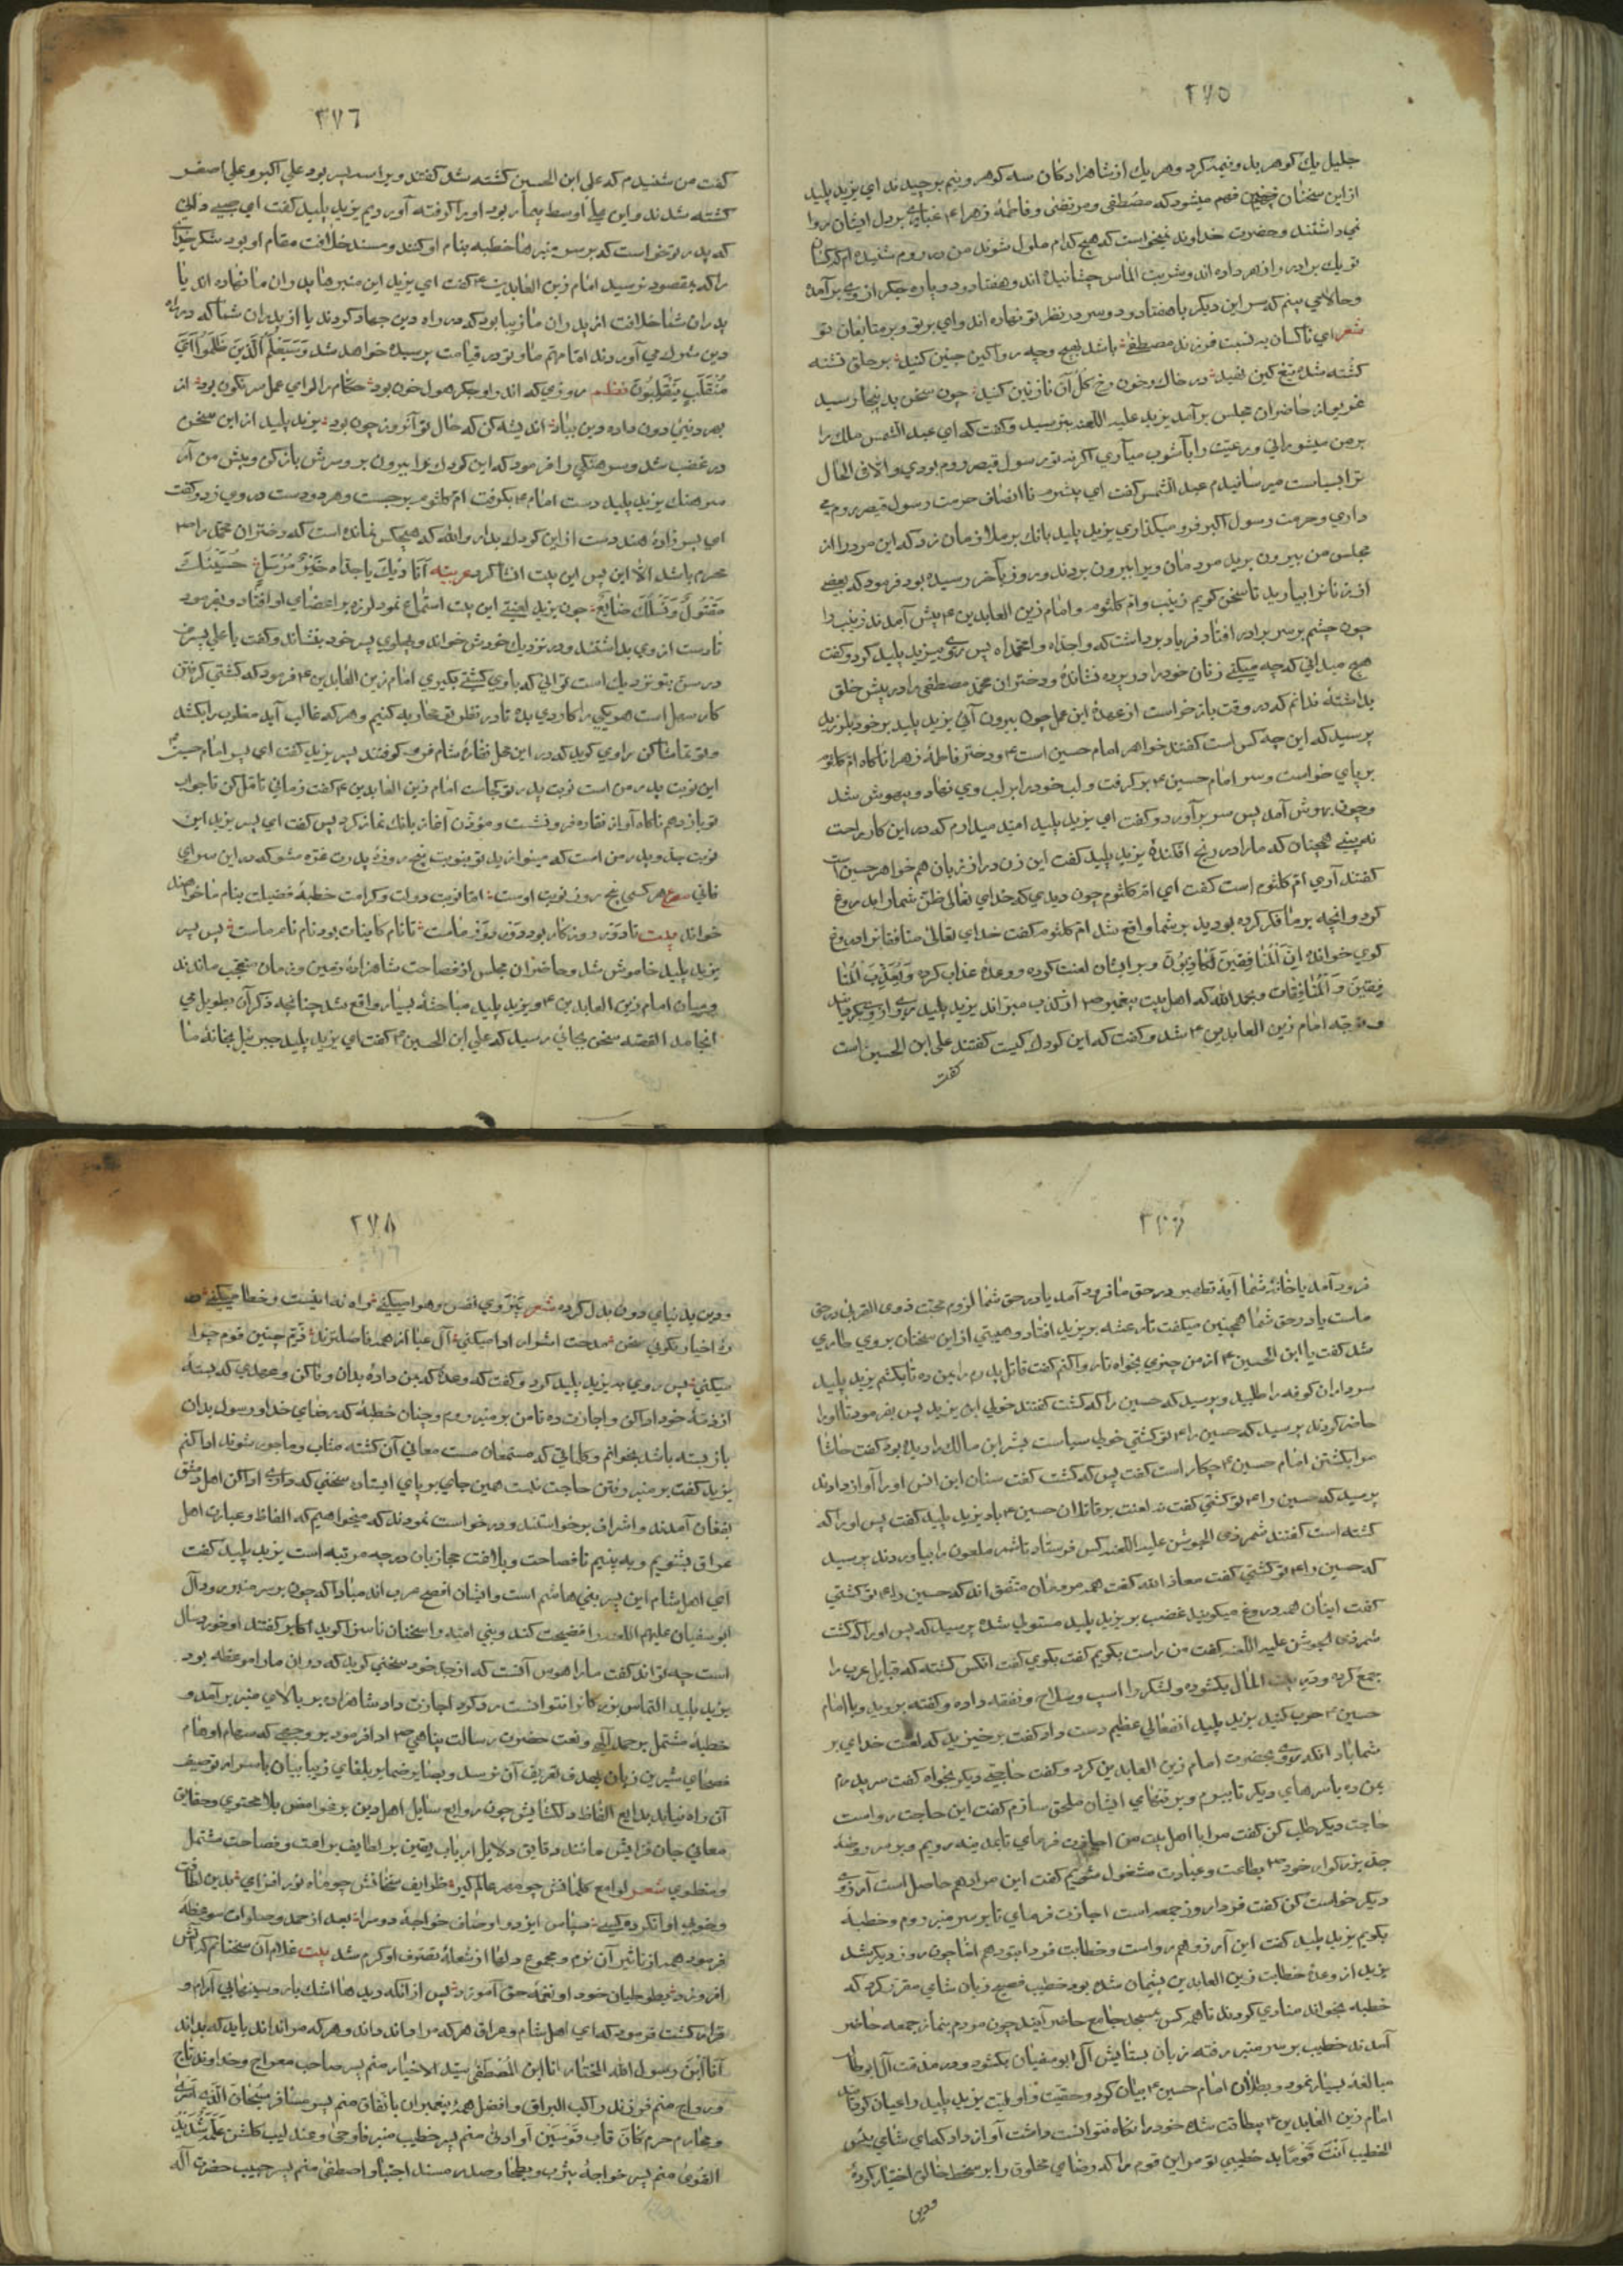 ٢٧٥
جليل يك كوهر بدو نيمه كرد و هر يك از شاهزادكان سه كوهر و نيم بر چيدند اي يزيد پليد
از اين سخنان چنين فهم ميشود كه مصطفى و مرتضى و فاطمهٔ زهرا ع غباري بر دل ايشان روا
نمي داشتند و حضرت خداوند نميخواست كه هيچ كدام ملول شوند من در روم شنيده ام كه كسان
تو يك برادر را زهر داده اند و شربت الماس چشانيده اند و هفتاد و دو پاره جكر از وي بر آمده
و حالا مي بينم كه سر اين ديكر با هفتاد و دو سر در نظر تو نهاده اند واي بر تو و بر متابعان تو
شعر اي ناكسان به نسبت فرزند مصطفى باشد بهيچ وجه روا كين چنين كنيد بر حلق تشنه
كشته شده تيغ كين نهيد در خاك و خون رخ كل آن نازنين كنيد چون سخن بدينجا رسيد
غريو از حاضران مجلس بر آمد يزيد عليه اللعنه بترسيد و كفت كه اي عبد الشمس ملك را
بر من ميشوراني و رعيت را بآشوب مياوري اكر نه تو رسول قيصر روم بودي و الا في الحال
ترا بسياست ميرسانيدم عبد الشمس كفت اي بيشرم نا انصاف حرمت رسول قيصر روم مي
داري و حرمت رسول اكبر فرو ميكذاري يزيد پليد بانك بر ملازمان زد كه اين مرد را از
مجلس من بيرون بريد مردمان ويرا بيرون بردند و روز بآخر رسيده بود فرمود كه بعضي
از زنانرا بياريد تا سخن كويم زينب و ام كلثوم و امام زين العابدين ع پيش آمدند زينب را
چون چشم بر سر برادر افتاد فرياد برداشت كه واجداه وامحمداه پس روي بيزيد پليد كرد و كفت
هيچ ميداني كه چه ميكني زنان خود را در پرده نشاندهٔ و دختران محمد مصطفى را در پيش خلق
بداشتهٔ ندانم كه در وقت باز خواست از عهدهٔ اين عمل چون بيرون آئي يزيد پليد بر خود بلرزيد
پرسيد كه اين چه كس است كفتند خواهر امام حسين است ع و دختر فاطمهٔ زهرا ناكاه ام كلثوم
بر پاي خواست و سر امام حسين ع بر كرفت و لب خود را بر لب وي نهاد و بيهوش شد
و چون بهوش آمد پس سر بر آورد و كفت اي يزيد پليد اميد ميدارم كه در اين كار راحت
نه بيني همچنان كه ما را در رنج افكندهٔ يزيد پليد كفت اين زن دراز زبان هم خواهر حسين است
كفتند آري ام كلثوم است كفت اي ام كلثوم چون ديدي كه خداي تعالى ظن شما را بدروغ
كرد و انچه بر ما فكر كرده بوديد بر شما واقع شد ام كلثوم كفت خداي تعالى منافقانرا دروغ
كوي خوانده ان المنافقين لكاذبون و بر ايشان لعنت كرده و وعدهٔ عذاب كرده و يعذب المنا
فقين و المنافقات و بحمد الله كه اهل بيت پيغمبر ص از كذب مبرا اند يزيد پليد روي از وي بكردانيد
و متوجه امام زين العابدين ع شد و كفت كه اين كودك كيست كفتند علي ابن الحسين است
كفت
٢٧٦
كفت من شنيدم كه علي ابن الحسين كشته شد كفتند ويرا سه پسر بود علي اكبر و علي اصغر
كشته شدند و اين علي اوسط بيمار بود اورا كرفته آورديم يزيد پليد كفت اي صبي داني
كه پدر تو خواست كه بر سر منبرها خطبه بنام او كنند و مسند خلافت مقام او بود شكر خداي
را كه بمقصود نرسيد امام زين العابدين ع كفت اي يزيد اين منبرها پدران ما نهاده اند يا
پدران شما خلافت از پدران ما زيبا بود كه در راه دين جهاد كردند يا از پدران شما كه در راه
دين شرك مي آوردند اما مهم ما و تو در قيامت پرسيده خواهد شد وسيعلم الذين ظلموا اي
منقلب ينقلبون نظم روزي كه اندر او جكر هول خون بود حكام را لواي عمل سرنكون بود از
بهر دنيي دون داده دين بباد انديشه كن كه حال تو آنروز چون بود يزيد پليد از اين سخن
در غضب شد و سرهنكي را فرمود كه اين كودك را بيرون بر و سرش باز كن و پيش من آر
سرهنك يزيد پليد دست امام ع بكرفت ام كلثوم برجست و هر دو دست در وي زد و كفت
اي پسر زادهٔ هند دست از اين كودك بدار و الله كه هيچكس نمانده است كه دختران محمد را ص
محرم باشد الا اين پس اين بيت انشا كرد عربيه اناديك يا جداه خير مرسل حسينك
مقتول ونسلك ضائع چون يزيد لعين اين بيت استماع نمود لرزه بر اعضاي او افتاد و بفرمود
تا دست از وي بداشتند و در نزديك خودش خواند و پهلوي پسر خود بنشاند و كفت يا علي پسر من
در سن بتو نزديك است تواني كه با وي كشتي بكيري امام زين العابدين ع فرمود كه كشتي كرفتن
كار سهل است هر يكي را كاردي بده تا در نظر تو محاربه كنيم و هر كه غالب آيد مغلوب را بكشد
و تو تماشا كن راوي كويد كه در اين محل نقارهٔ شام فرو كوفتند پسر يزيد كفت اي پسر امام حسين ع
اين نوبت پدر من است نوبت پدر تو كجاست امام زين العابدين ع كفت زماني تامل كن تا جواب
تو باز دهم ناكاه آواز نقاره فرو نشست و مؤذن آغاز بانك نماز كرد پس كفت اي پسر يزيد اين
نوبت جد و پدر من است كه ميزنند بدين نوبت پنج روزهٔ پدرت غره مشو كه در اين سراي
فاني مصرع هر كسي پنج روز نوبت اوست اما نوبت دولت و كرامت خطبهٔ فضيلت بنام ما خواهند
خواند بيت تا دور روزكار بود دور دور ماست تا نام كاينات بود نام نام ماست پس پسر
يزيد پليد خاموش شد و حاضران مجلس از فصاحت شاهزادهٔ زمين و زمان متعجب ماندند
و ميان امام زين العابدين ع و يزيد پليد مباحثهٔ بسيار واقع شد چنانچه ذكر آن بطويل مي
انجامد القصه سخن بجائي رسيد كه علي ابن الحسين ع كفت اي يزيد پليد جبرئيل بخانهٔ ما
٢٧٧
فرود آمد يا خانهٔ شما آيهٔ تطهير در حق ما فرود آمد يا در حق شما لزوم محبت ذوي القربى در حق
ماست يا در حق شما همچنين ميكفت تا رعشه بر يزيد افتاد و هيبتي از اين سخنان بر وي طاري
شد كفت يا ابن الحسين ع از من چيزي بخواه تا روا كنم كفت قاتل پدرم را بمن ده تا بكشم يزيد پليد
سرداران كوفه را طلبيد و پرسيد كه حسين را كه كشت كفتند خولي ابن يزيد پس بفرمود تا اورا
حاضر كردند پرسيد كه حسين را ع تو كشتي خولي سياست بشر ابن مالك را ديده بود كفت حاشا
مرا بكشتن امام حسين ع چكار است كفت پس كه كشت كفت سنان ابن انس اورا آواز دادند
پرسيد كه حسين را ع تو كشتي كفت نه لعنت بر قاتلان حسين ع باد يزيد پليد كفت پس اورا كه
كشته است كفتند شمر ذي الجوشن عليه اللعنه كس فرستاد تا شمر ملعون را بياوردند پرسيد
كه حسين را ع تو كشتي كفت معاذ الله كفت همه مردمان متفق اند كه حسين را ع تو كشتي
كفت اينان همه دروغ ميكويند غضب بر يزيد پليد مستولي شده پرسيد كه پس اورا كه كشت
شمر ذي الجوشن عليه اللعنه كفت من راست بكويم كفت بكوي كفت انكس كشته كه قبايل عرب را
جمع كرده و در بيت المال بكشوده و لشكر را اسپ و سلاح و نفقه داده و كفته برويد و با امام
حسين ع حرب كنيد يزيد پليد را انفعالي عظيم دست داد كفت برخيزيد كه لعنت خداي بر
شما باد انكه روي بحضرت امام زين العابدين كرد و كفت حاجتي ديكر بخواه كفت سر پدرم
بمن ده با سرهاي ديكر تا ببرم و بر تنهاي ايشان ملحق سازم كفت اين حاجت رواست
حاجت ديكر طلب كن كفت مرا با اهل بيت من اجازت فرماي تا بمدينه رويم و بر سر روضهٔ
جد بزركوار خود ص بطاعت و عبادت مشغول شويم كفت اين مراد هم حاصل است آرزوي
ديكر خواست كن كفت فردا روز جمعه است اجازت فرماي تا بر سر منبر روم و خطبهٔ
بكويم يزيد پليد كفت اين آرزو هم رواست و خطابت فردا بتو دهم اما چون روز ديكر شد
يزيد از وعدهٔ خطابت زين العابدين پشيمان شده بود خطيب فصيح زبان شامي مقرر كرد كه
خطبه بخواند منادي كردند تا همه كس بمسجد جامع حاضر آيند چون مردم بنماز جمعه حاضر
آمدند خطيب بر سر منبر رفته زبان بستايش آل ابو سفيان بكشود و در مذمت آل ابو طالب
مبالغهٔ بسيار نمود و بطلان امام حسين ع بيان كرد و حقيت و اوليت يزيد پليد و اعيان كوفه
امام زين العابدين ع بيطاقت شده خود را نكاه نتوانست داشت آواز داد كه اي شامي بئس
الخطيب انت قوما بد خطيبي تو مر اين قوم را كه رضاي مخلوق را بر سخط خالق اختيار كردهٔ
و دين
٢٧٨
و دين بدنياي دون بدل كرده شعر پيروي نفس و هوا ميكني راه نه اينست و خطا ميكني مد
ره اخيار نكوئي سخن مدحت اشرار ادا ميكني آل عبا از همه فاضلترند ذم چنين قوم چرا
ميكني پس روي به يزيد پليد كرد و كفت كه وعدهٔ كه بمن دادهٔ بدان وفا كن و عهدي كه بستهٔ
از ذمهٔ خود ادا كن و اجازت ده تا من بر منبر روم و چنان خطبهٔ كه رضاي خدا و رسول بدان
باز بسته باشد بخوانم و كلماتي كه مستمعان مست معاني آن كشته مثاب و ماجور شوند ادا كنم
يزيد كفت بر منبر رفتن حاجت نيست همين جاي بر پاي ايستاده سخني كه داري ادا كن اهل دمشق
بفغان آمدند و اشراف برخواستند و درخواست نمودند كه ميخواهيم كه الفاظ و عبارت اهل
عراق بشنويم و به بينيم تا فصاحت و بلاغت حجازيان در چه مرتبه است يزيد پليد كفت
اي اهل شام اين پسر بني هاشم است و ايشان افصح عرب اند مبادا كه چون بر سر منبر رود آل
ابو سفيان عليهم اللعنه را فضيحت كند و بني اميه را سخنان ناسزا كويد اكابر كفتند او خورد سال
است چه تواند كفت ما را هوس آنست كه از جد خود سخني كويد كه در ان ما را موعظه بود
يزيد پليد التماس بزركانرا نتوانست رد كرد اجازت داد شاهزاده بر بالاي منبر بر آمد و
خطبهٔ مشتمل بر حمد الهي و نعت حضرت رسالت پناهي ص ادا فرمود بر وجهي كه سهام اوهام
فصحاي شيرين زبان بهدف تعريف آن نرسد و بصاير ضماير بلغاي زيبا بيان باسرار توصيف
آن راه نيابد بدايع الفاظ دلكشايش چون روايع سائل اهل دين بر غوامض بلاغت محتوي و حقايق
معاني جان فزايش مانند دقايق دلايل ارباب يقين بر لطايف براعت و فصاحت مشتمل
و منطوي شعر لوامع كلماتش چو مهر عالم كير ظرايف سخنانش چو ماه نور افزاي بدين لطافت
و خوبي ادا نكرده كسي سپاس ايزد و اوصاف خواجهٔ دو سرا بعد از حمد و صلوات موعظهٔ
فرمود همه از تاثير آن نرم و مجموع دلها از شعلهٔ تصرف او كرم شد بيت غلام آن سخنانم كه آتش
افروزد بطوطيان خرد او نغمهٔ حق آموزد پس از انكه ديدها اشك بار و سينها بي آرام و
قرار كشت فرمود كه اي اهل شام و عراق هر كه مرا داند داند و هر كه مرا نداند بايد كه بداند
انا ابن رسول الله المختار انا ابن المصطفى سيد الاخيار منم پسر صاحب معراج و خداوند تاج
و رواج منم فرزند راكب البراق و افضل همهٔ پيغمبران باتفاق منم پسر مسافر سبحان الذي اسرى
و محارم حرم فكان قاب قوسين او ادنى منم پسر خطيب منبر فاوحى و عندليب كلشن علمه شديد
القوى منم پسر خواجهٔ يثرب و بطحا و صدر مسند اجتبا و اصطفى منم پسر حبيب حضرت اله